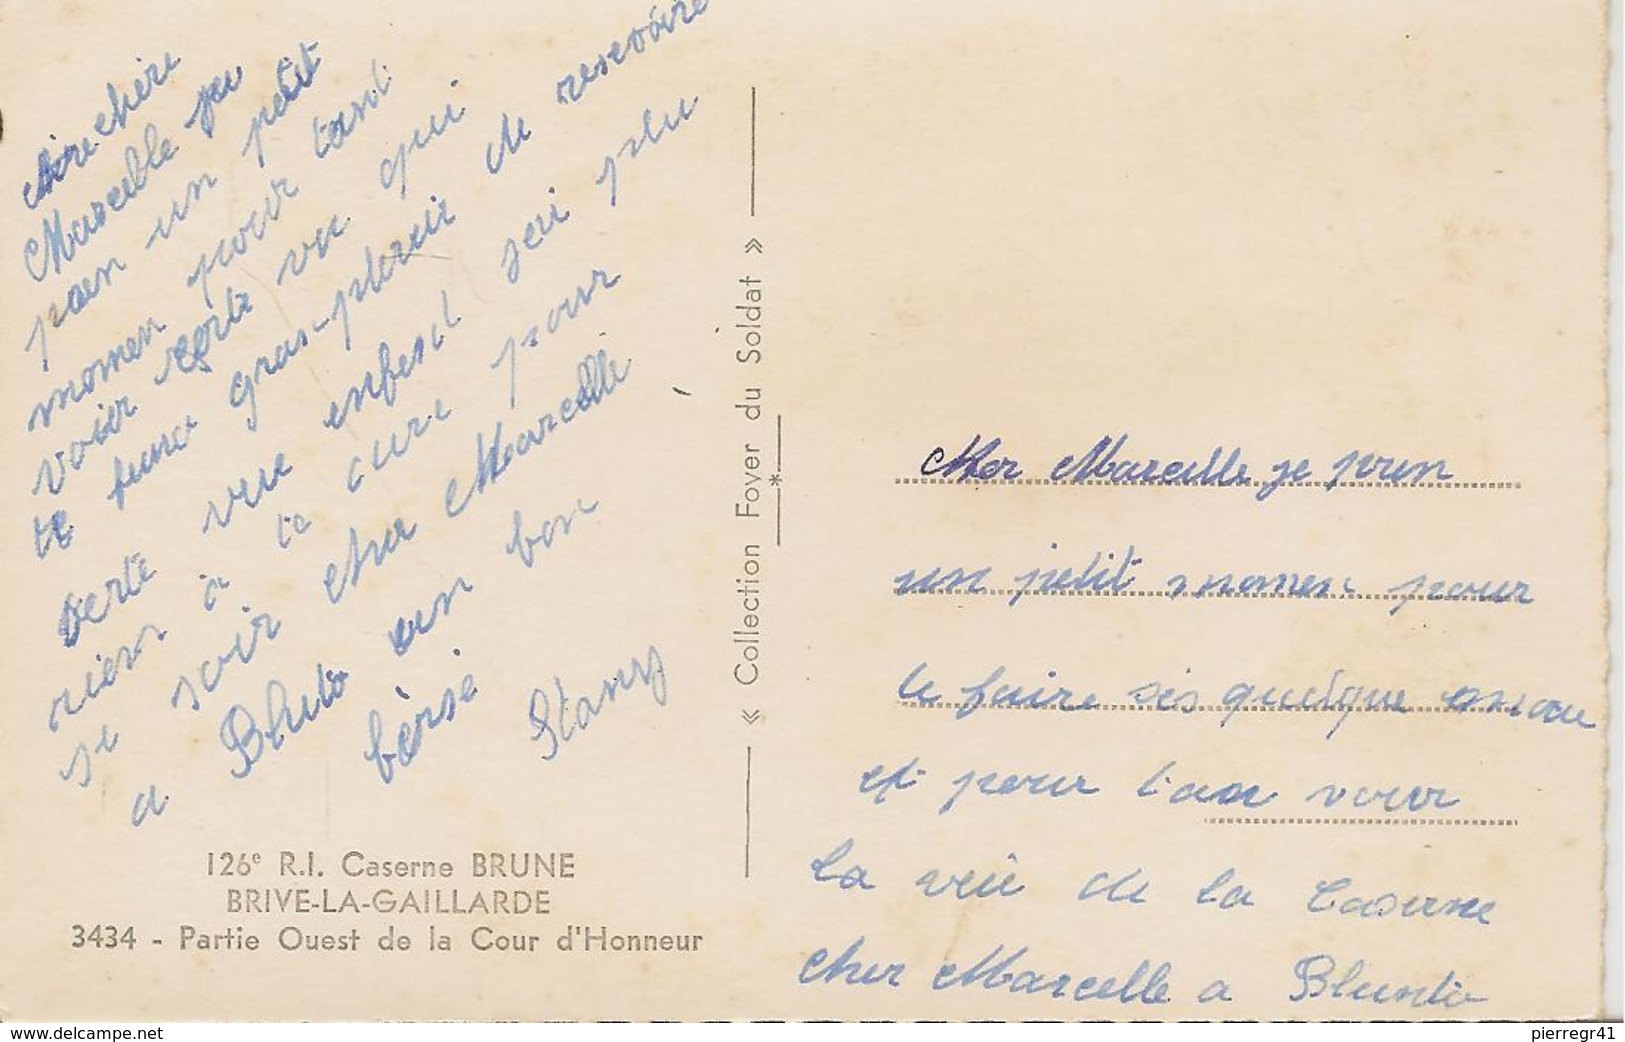 chère chère
Marcelle je
pren un petit
momen pour tant
voier serte vu qui
te fera gran plesir de resevoire
serte vue enfent sei plu
rien à te cure pour
se soir cher Marcelle
a un bon
bèrsé
Stany
126e R.I. Caserne BRUNE
BRIVE-LA-GAILLARDE
3434 - Partie Ouest de la Cour d'Honneur
« Collection Foyer du Soldat »
Cher Marcelle je pren
un petit momen pour
te faire ses quelque
et pour t'an vour
la veu de la Caserne
cher Marcelle a
www.delcampe.net
pierregr41